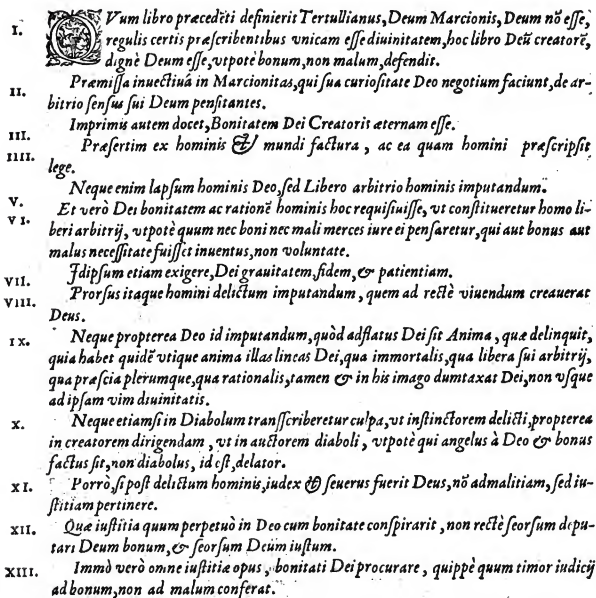 I. CVum libro præcedēti definierit Tertullianus, Deum Marcionis, Deum nō esse,
regulis certis præscribentibus vnicam esse diuinitatem, hoc libro Deū creatorē,
dignè Deum esse, vtpotè bonum, non malum, defendit.
II. Præmissa inuectiuá in Marcionitas, qui sua curiositate Deo negotium faciunt, de ar-
bitrio sensus sui Deum pensitantes.
III. Imprimis autem docet, Bonitatem Dei Creatoris æternam esse.
IIII. Præsertim ex hominis & mundi factura, ac ea quam homini præscripsit
lege.
V. Neque enim lapsum hominis Deo, sed Libero arbitrio hominis imputandum.
VI. Et verò Dei bonitatem ac rationē hominis hoc requisiuisse, vt constitueretur homo li-
beri arbitrij, vtpotè quum nec boni nec mali merces iure ei pensaretur, qui aut bonus aut
malus necessitate fuisset inuentus, non voluntate.
VII. Idipsum etiam exigere, Dei grauitatem, fidem, & patientiam.
VIII. Prorsus itaque homini delictum imputandum, quem ad rectè viuendum creauerat
Deus.
IX. Neque propterea Deo id imputandum, quòd adflatus Dei sit Anima, quæ delinquit,
quia habet quidē vtique anima illas lineas Dei, qua immortalis, qua libera sui arbitrij,
qua præscia plerumque, qua rationalis, tamen & in his imago dumtaxat Dei, non vsque
ad ipsam vim diuinitatis.
X. Neque etiamsi in Diabolum transscriberetur culpa, vt instinctorem delicti, propterea
in creatorem dirigendam, vt in auctorem diaboli, vtpotè qui angelus à Deo & bonus
factus sit, non diabolus, id est, delator.
XI. Porrò, si post delictum hominis, iudex & seuerus fuerit Deus, nō ad malitiam, sed iu-
stitiam pertinere.
XII. Quæ iustitia quum perpetuò in Deo cum bonitate conspirarit, non rectè seorsum depu-
tari Deum bonum, & seorsum Deum iustum.
XIII. Immò verò omne iustitiæ opus, bonitati Dei procurare, quippè quum timor iudicij
ad bonum, non ad malum conferat.